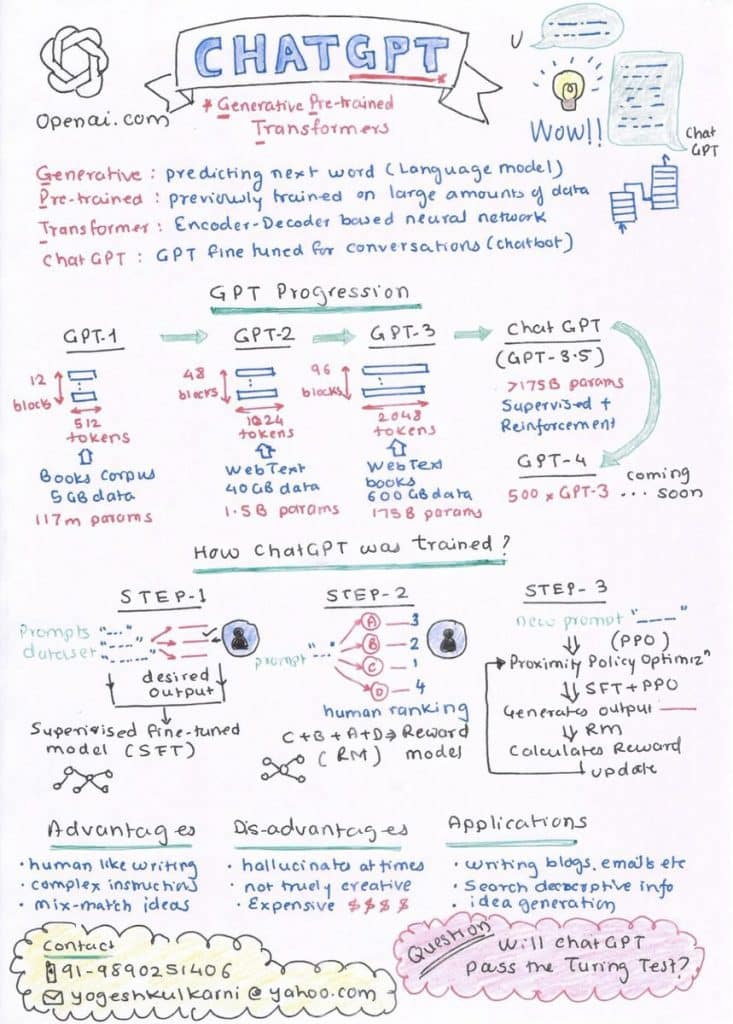 CHATGPT
Openai.com
* Generative Pre-trained
Transformers
U
Wow!!
Chat
GPT
Generative : predicting next word (Language model)
Pre-trained : previously trained on large amounts of data
Transformer : Encoder-Decoder based neural network
ChatGPT : GPT fine tuned for conversations (chatbot)
GPT Progression
GPT-1
12
blocks
512
tokens
Books Corpus
5GB data
117m params
GPT-2
48
blocks
1024
tokens
WebText
40GB data
1.5B params
GPT-3
96
blocks
2048
tokens
WebText
books
600GB data
175B params
Chat GPT
(GPT-3.5)
>175B params
Supervised +
Reinforcement
GPT-4
500 x GPT-3 ... coming soon
How ChatGPT was trained?
STEP-1
Prompts
dataset
desired
output
Supervised fine-tuned
model (SFT)
STEP-2
prompt
A 3
B 2
C 1
D 4
human ranking
C+B+A+D => Reward
(RM) model
STEP-3
new prompt "___"
(PPO)
Proximity Policy Optimizn
SFT+PPO
Generates output
RM
Calculates Reward
update
Advantages
• human like writing
• complex instructions
• mix-match ideas
Dis-advantages
• hallucinates at times
• not truely creative
• Expensive $ $ $ $
Applications
• writing blogs, emails etc
• Search info
• idea generation
Contact
91-9890251406
yogeshkulkarni@yahoo.com
Question
Will ChatGPT
pass the Turing Test?